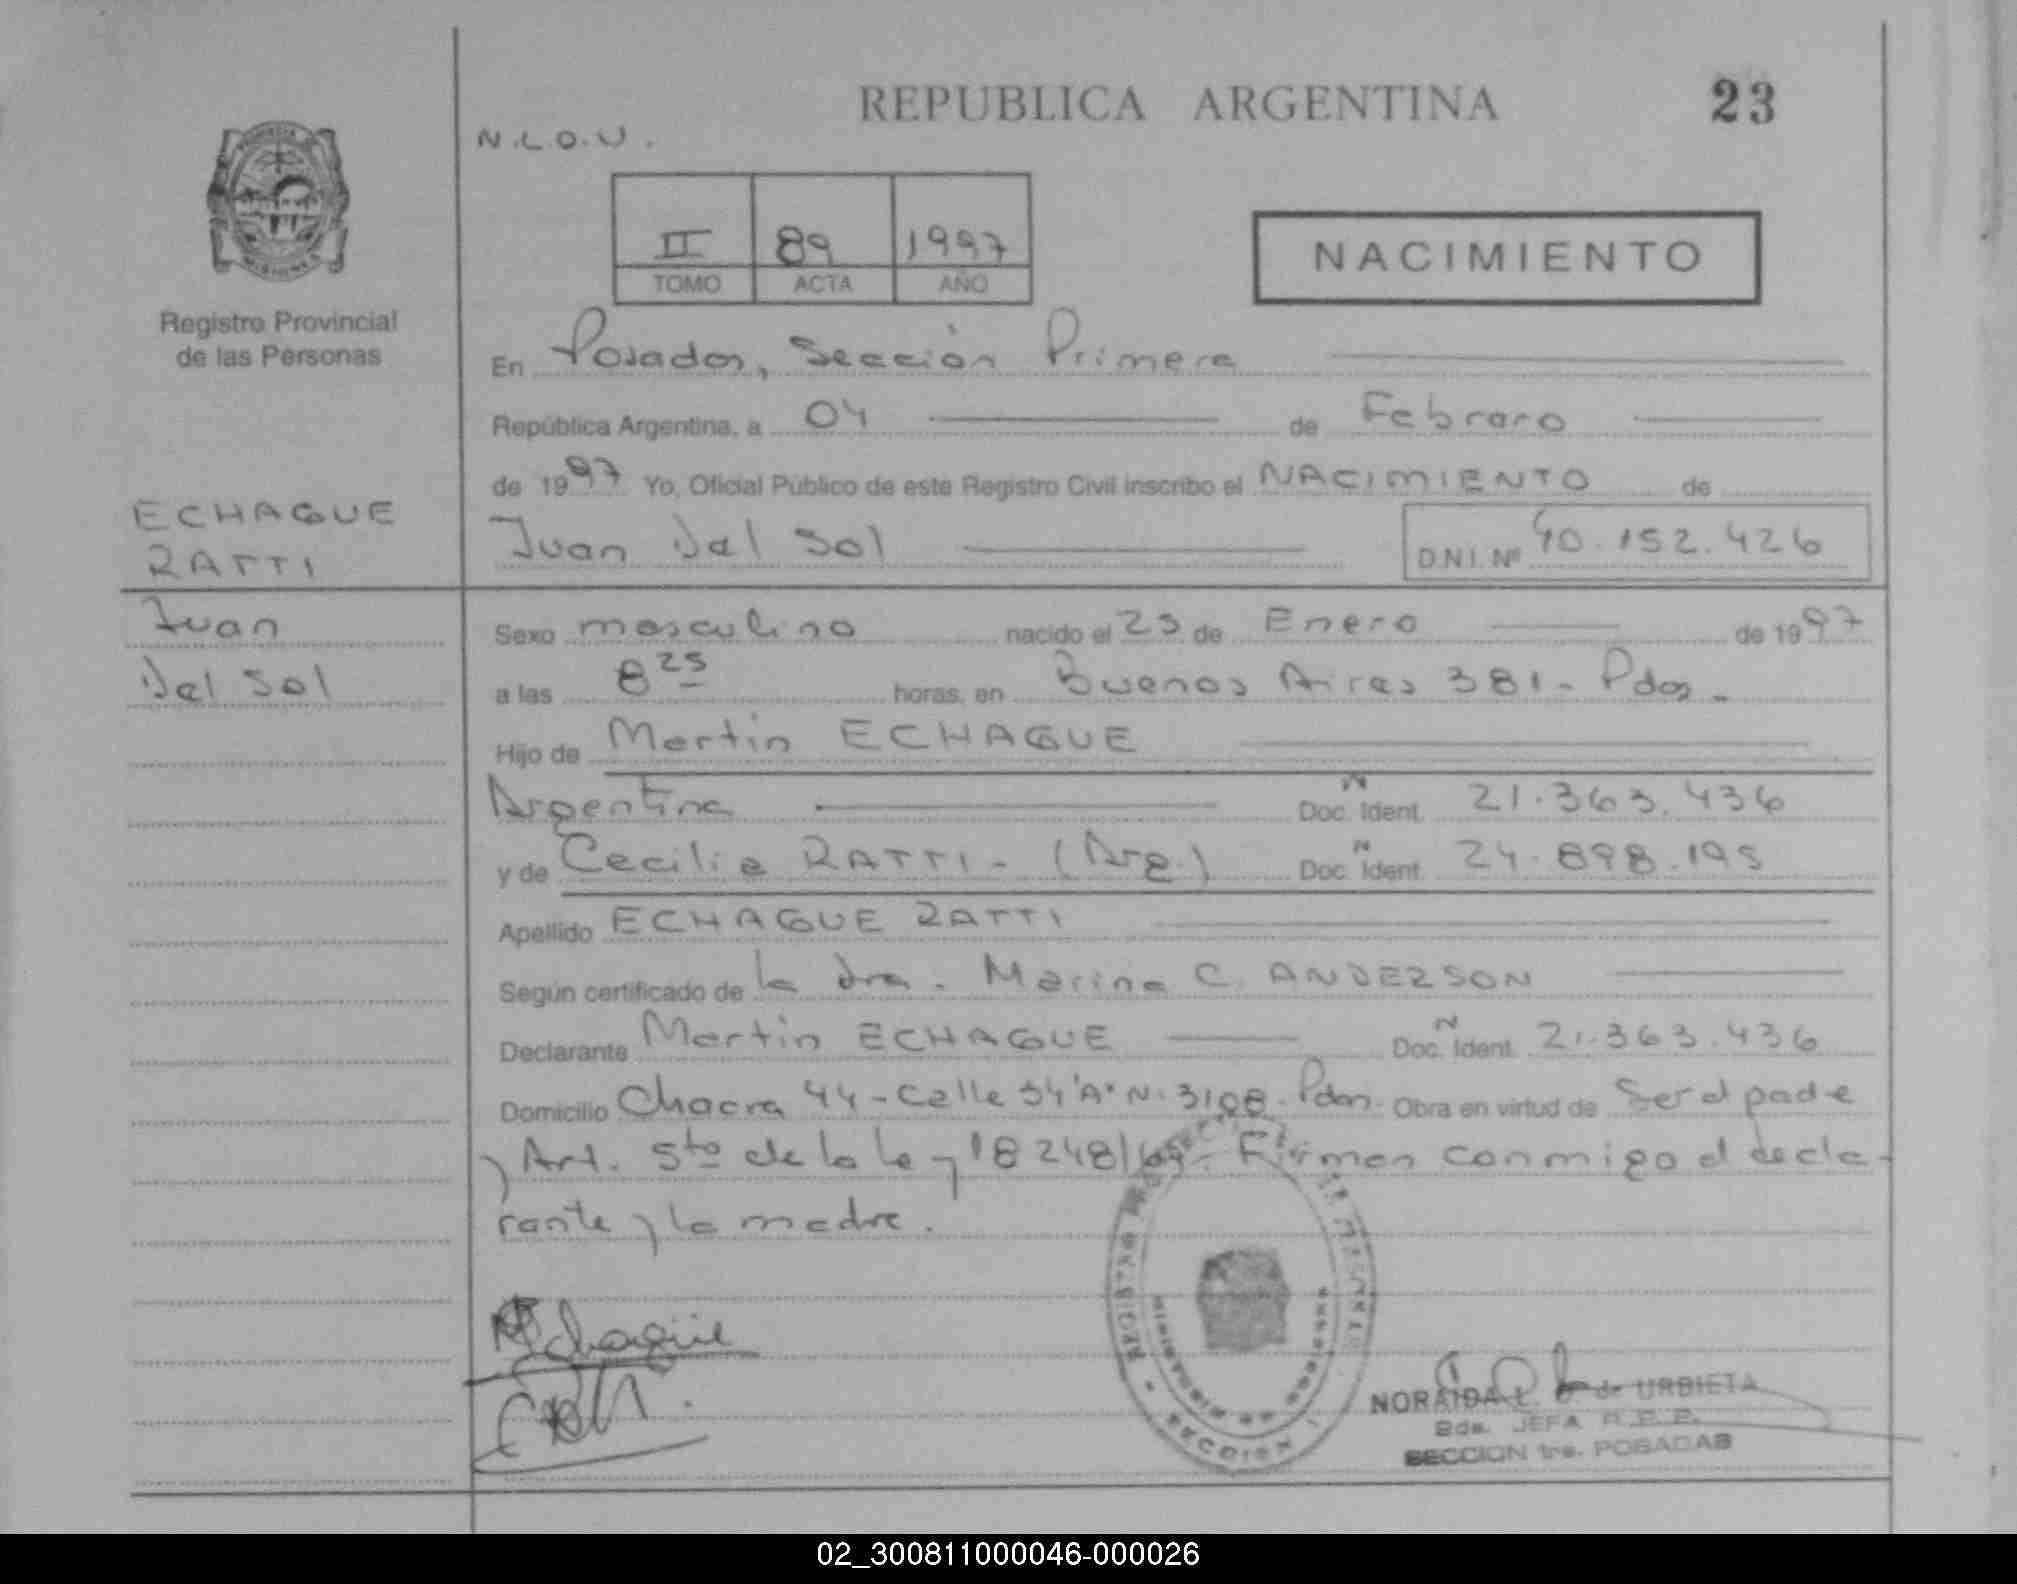 REPUBLICA ARGENTINA
23
N.L.O.U.
II 89 1997
TOMO ACTA AÑO
NACIMIENTO
Registro Provincial
de las Personas
En Posadas, Sección Primera
República Argentina, a 04 de Febrero
de 1997 Yo, Oficial Público de este Registro Civil inscribo el NACIMIENTO de
ECHAGUE
RATTI
Juan Del Sol
D.N.I. Nº 40.152.426
Juan
Del Sol
Sexo masculino nacido el 23 de Enero de 1997
a las 8 25 horas, en Buenos Aires 381 - Pdas -
Hijo de Martin ECHAGUE
Argentina Doc. Ident. 21.363.436
y de Cecilia RATTI - (Arg.) Doc. Ident. 24.898.195
Apellido ECHAGUE RATTI
Según certificado de la dra. Marina C. ANDERSON
Declarante Martin ECHAGUE Doc. Ident. 21.363.436
Domicilio Chacra 44 - Calle 34 "A" N. 3108 - Pdas. Obra en virtud de Ser el padre
y Art. 5to de la ley 18248/69 - Firman conmigo el decla-
rante y la madre.
Echagüe
NORAIDA L. de URBIETA
JEFA
SECCION 1ra. POSADAS
SECCION
02_300811000046-000026